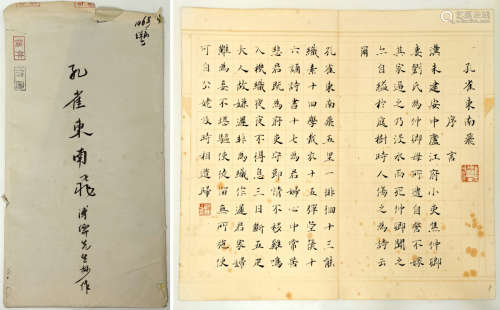 孔雀東南飛
先生
孔雀東南飛
序言
漢末建安中廬江府小吏焦仲卿
妻劉氏為仲卿母所遣自誓不嫁
其家逼之乃没水而死仲卿聞之
亦自縊於庭樹時人傷之為詩云
爾
孔雀東南飛五里一徘徊十三能
織素十四學裁衣十五彈箜篌十
六誦詩書十七為君婦心中常苦
悲君既為府吏守節情不移雞鳴
入機織夜夜不得息三日斷五疋
大人故嫌遲非為織作遲君家婦
難為妾不堪驅使徒留無所施便
可白公姥及時相遣歸